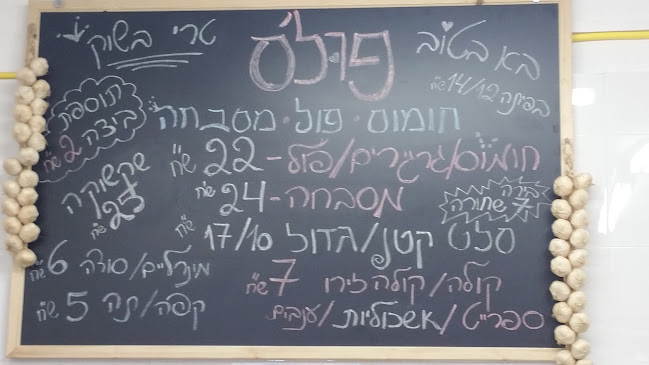 פרל'ס
טרי בשוק
בא בטוב
בפיתה 14/12 ש"ח
תוספת
ביצה 2 ש"ח
חומוס • פול • מסבחה
חומוס/גרגירים/פול - 22 ש"ח
מסבחה - 24 ש"ח
שקשוקה
25 ש"ח
בירה
7 שחורה
סלט קטן/גדול 17/10 ש"ח
מינרלים/סודה 6 ש"ח
קולה/קולה זירו 7 ש"ח
קפה/תה 5 ש"ח
ספרייט/אשכוליות/ענבים